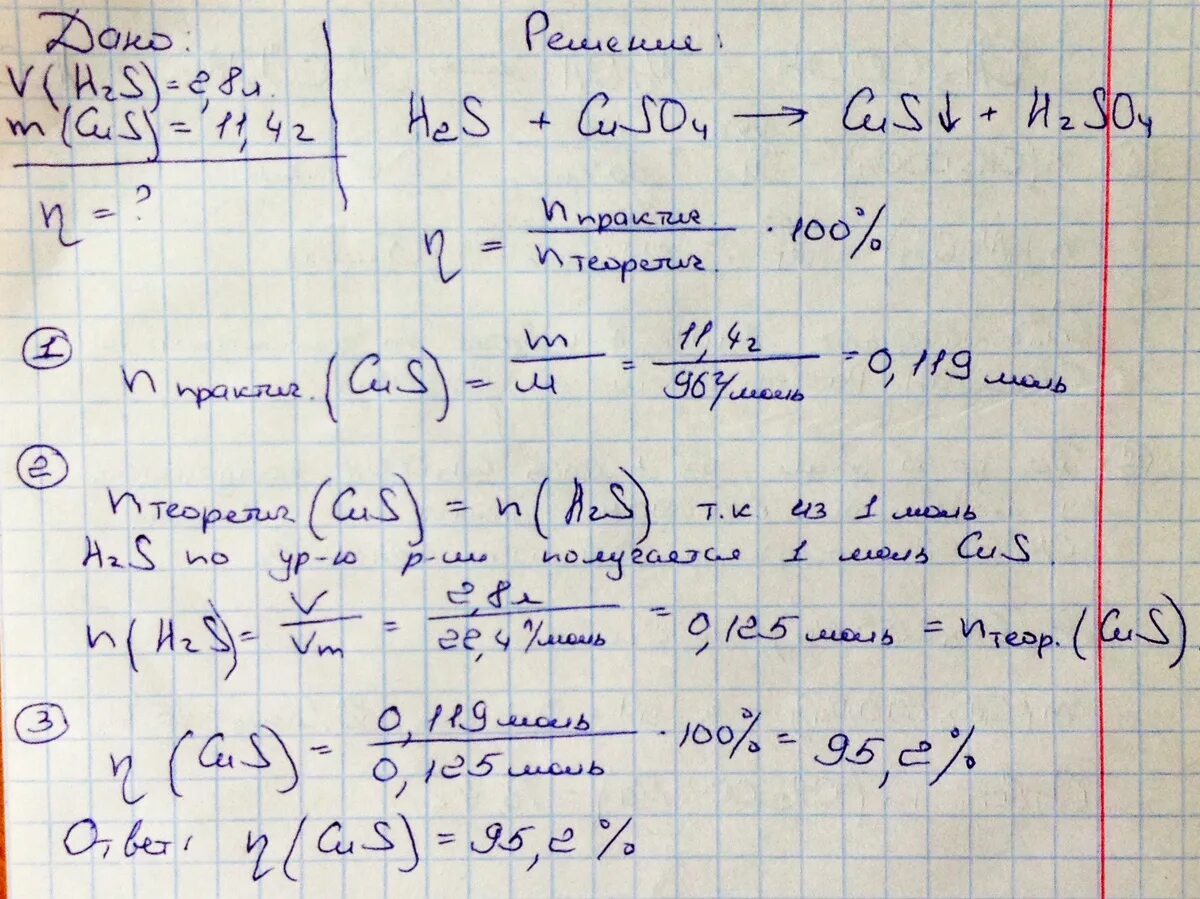 Дано:
V(H₂S)=2,8л.
m(CuS)=11,4г
η=?
Решение:
H₂S + CuSO₄ → CuS↓ + H₂SO₄
η = n практич. / n теоретич. · 100%
① n практич.(CuS) = m/M = 11,4г / 96г/моль = 0,119 моль
②
n теоретич(CuS) = n(H₂S) т.к из 1 моль
H₂S по ур-ю р-ии получается 1 моль CuS.
n(H₂S) = V/Vm = 2,8л / 22,4л/моль = 0,125 моль = n теор.(CuS).
③ η(CuS) = 0,119 моль / 0,125 моль · 100% = 95,2%
Ответ: η(CuS) = 95,2%